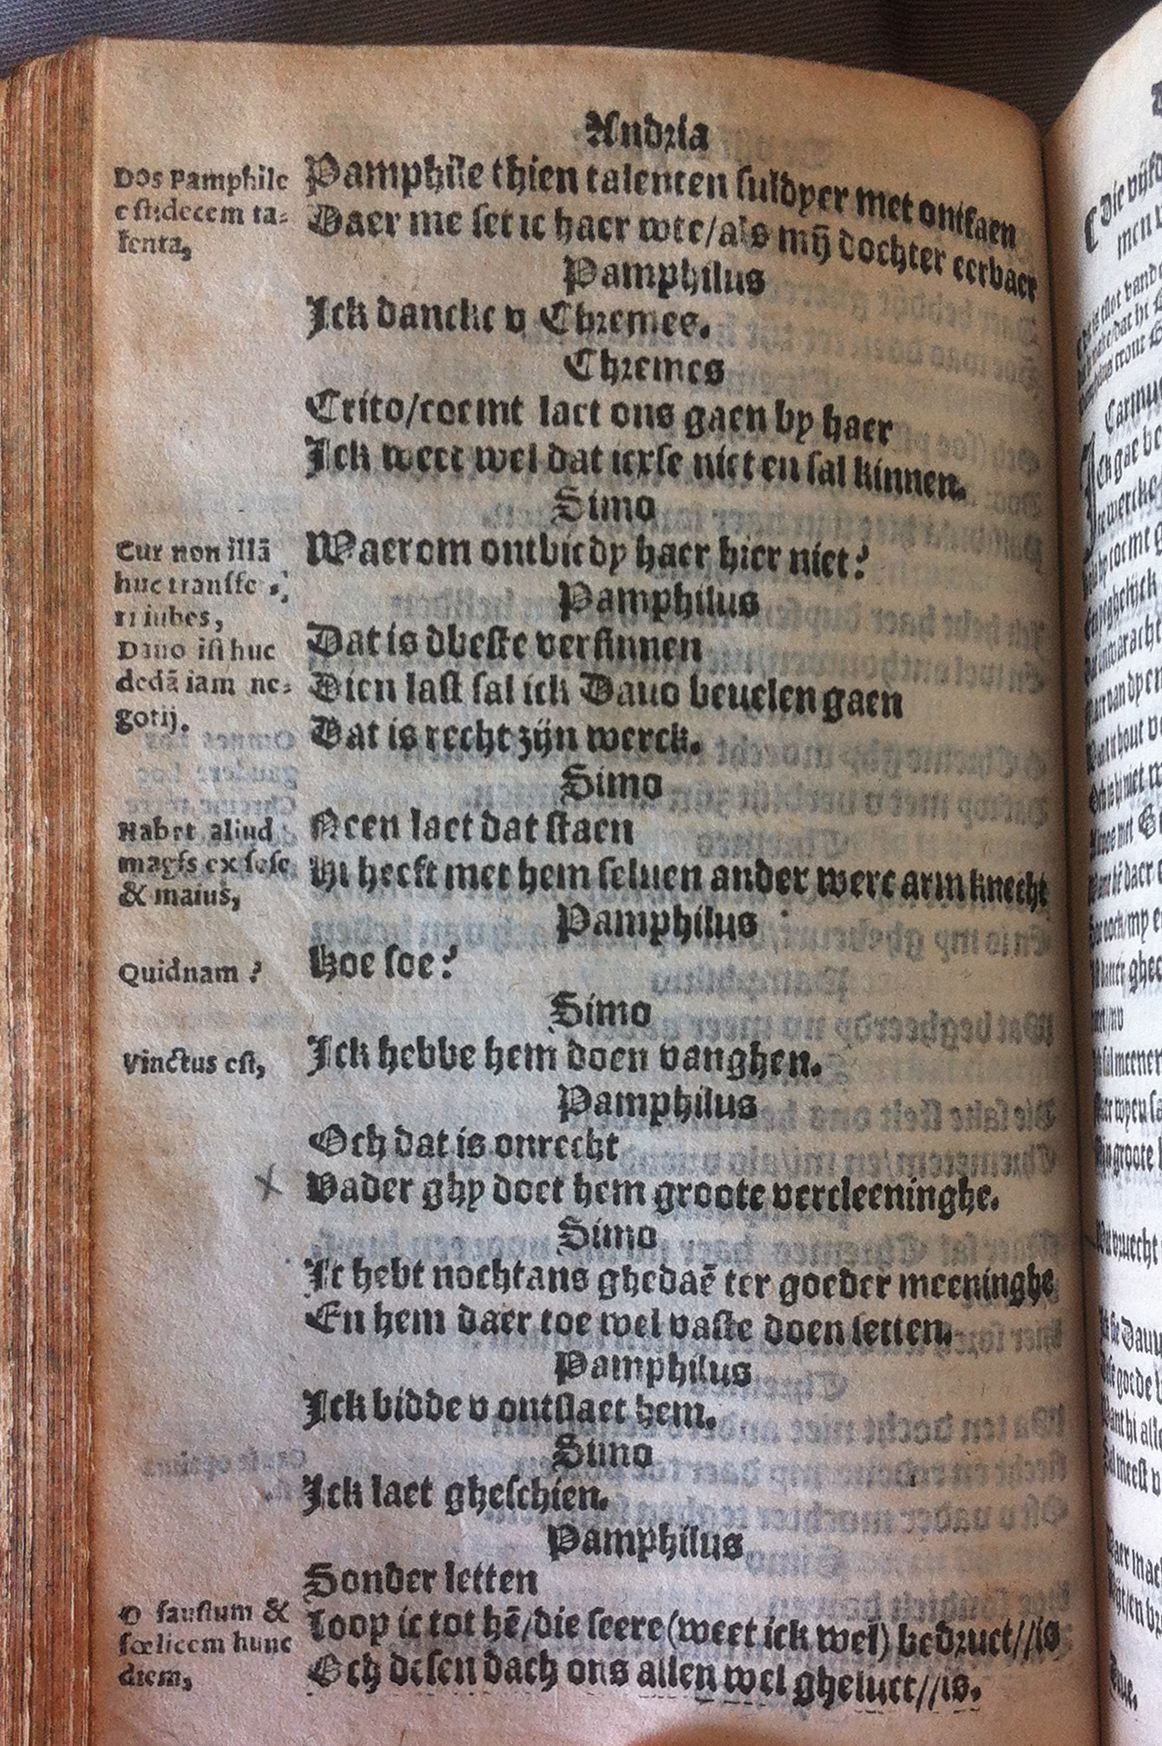 Andria
Dos Pamphile
est;decem ta-
lenta,
Pamphile thien talenten suldyer met ontfaen
Daer me set ic haer wte/als mij dochter eerbaer
Pamphilus
Ick dancke v Chremes.
Chremes
Crito/coemt laet ons gaen by haer
Ick weet wel dat icxse niet en sal kinnen.
Simo
Cur non illã
huc transfe
ri iubes,
Waerom ontbiedy haer hier niet?
Pamphilus
Dauo isthuc
dedã iam ne-
gotij.
Dat is dbeste versinnen
Dien last sal ick Dauo beuelen gaen
Dat is recht zijn werck.
Simo
Habet aliud
magis ex sese
& maius,
Neen laet dat staen
Hi heeft met hem seluen ander werc arm knecht
Pamphilus
Quidnam?
Hoe soe?
Simo
Vinctus est,
Ick hebbe hem doen vanghen.
Pamphilus
Och dat is onrecht
Vader ghy doet hem groote vercleeninghe.
Simo
Ic hebt nochtans ghedaẽ ter goeder meeninghe
En hem daer toe wel vaste doen setten.
Pamphilus
Ick bidde v ontslaet hem.
Simo
Ick laet gheschien.
Pamphilus
Sonder letten
O faustum &
fœlicem hunc
diem,
Loop ic tot hẽ/die seere (weet ick wel) bedruct//is
Och desen dach ons allen wel gheluct//is.